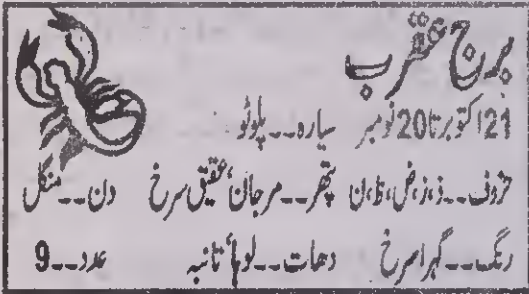 برج عقرب
21 اکتوبر تا 20 نومبر سیارہ۔۔پلوٹو
حروف۔۔ذ،ز،ض،ظ،ن پتھر۔۔مرجان، عقیق سرخ دن۔۔منگل
رنگ۔۔گہرا سرخ دھات۔۔لوہا، تانبہ عدد۔۔9